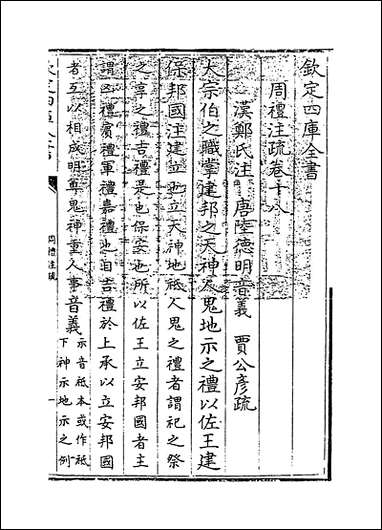 欽定四庫全書
周禮注疏卷十八
漢鄭氏注 唐陸德明音義 賈公彥疏
大宗伯之職掌建邦之天神人鬼地示之禮以佐王建
保邦國注建立也立天神地祗人鬼之禮者謂祀之祭
之享之禮吉禮是也保安也所以佐王立安邦國者主
謂凶禮賓禮軍禮嘉禮也目吉禮於上承以立安邦國
者互以相成明尊鬼神重人事音義示音祗本或作祗
下神示地示之例
周禮注疏
一